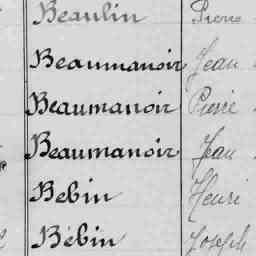 Beaulin Pierre
Beaumanoir Jean
Beaumanoir Pierre
Beaumanoir Jean
Bebin Henri
Bébin Joseph